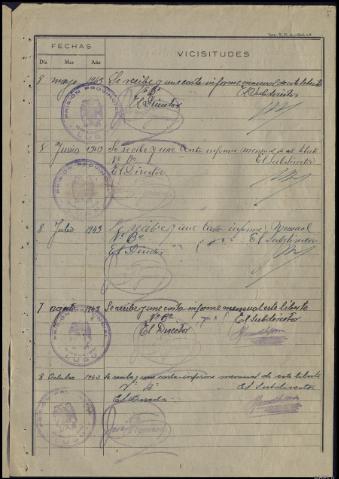 FECHAS VICISITUDES
Día Mes Año
8 mayo 1943 Se recibe y une carta informe mensual de este liberto
Vº Bº El Subdirector
El Director
PRISION PROVINCIAL
LUGO
8 Junio 1943 Se recibe y une carta informe mensual de este liberto
Vº Bº El Subdirector
El Director
8 Julio 1943 Se recibe y une carta informe mensual
Vº Bº El Subdirector
El Director
7 agosto 1943 Se recibe y une carta informe mensual este liberto
Vº Bº El Subdirector
El Director
LUGO
8 Octubre 1943 Se recibe y une carta informe mensual de este liberto
Vº Bº El Subdirector
El Director
LUGO